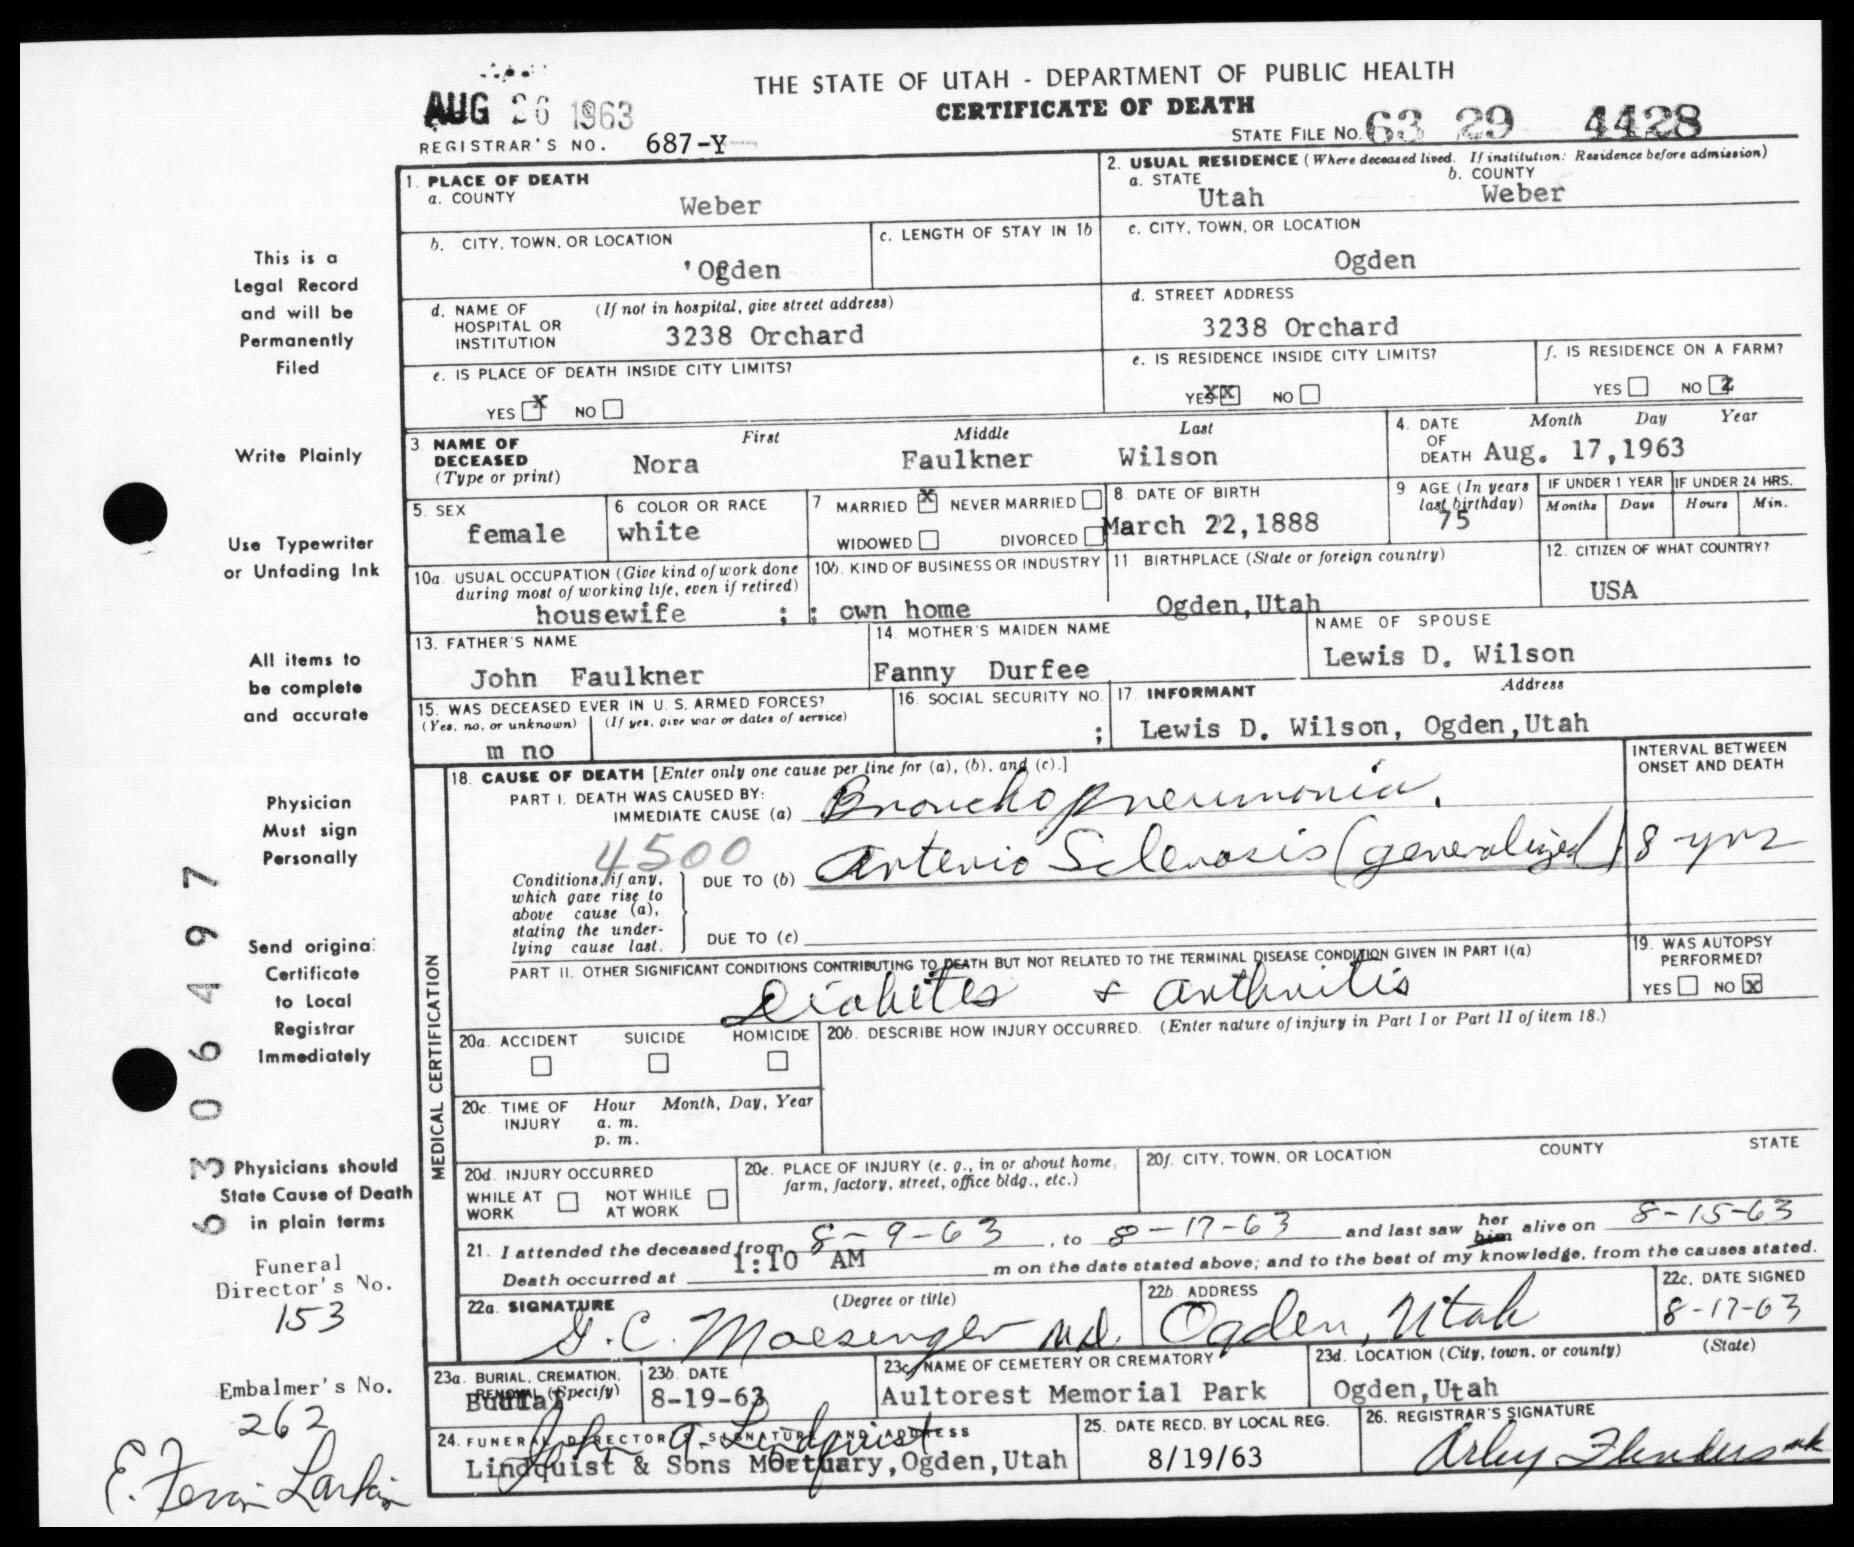 THE STATE OF UTAH - DEPARTMENT OF PUBLIC HEALTH
CERTIFICATE OF DEATH
AUG 26 1963
REGISTRAR'S NO. 687-Y
STATE FILE No. 63 29 4428
1. PLACE OF DEATH
a. COUNTY
Weber
2. USUAL RESIDENCE (Where deceased lived. If institution: Residence before admission)
a. STATE
Utah
b. COUNTY
Weber
b. CITY, TOWN, OR LOCATION
'Ogden
c. LENGTH OF STAY IN 1b
c. CITY, TOWN, OR LOCATION
Ogden
d. NAME OF HOSPITAL OR INSTITUTION
(If not in hospital, give street address)
3238 Orchard
d. STREET ADDRESS
3238 Orchard
e. IS PLACE OF DEATH INSIDE CITY LIMITS?
YES X NO
e. IS RESIDENCE INSIDE CITY LIMITS?
YES XX NO
f. IS RESIDENCE ON A FARM?
YES NO
3. NAME OF DECEASED
(Type or print)
First Middle Last
Nora Faulkner Wilson
4. DATE OF DEATH
Month Day Year
Aug. 17,1963
5. SEX
female
6 COLOR OR RACE
white
7 MARRIED X NEVER MARRIED
WIDOWED DIVORCED
8 DATE OF BIRTH
March 22,1888
9 AGE (In years last birthday)
75
IF UNDER 1 YEAR
Months Days
IF UNDER 24 HRS.
Hours Min.
10a. USUAL OCCUPATION (Give kind of work done during most of working life, even if retired)
housewife ;
10b. KIND OF BUSINESS OR INDUSTRY
; own home
11 BIRTHPLACE (State or foreign country)
Ogden,Utah
12. CITIZEN OF WHAT COUNTRY?
USA
13. FATHER'S NAME
John Faulkner
14. MOTHER'S MAIDEN NAME
Fanny Durfee
NAME OF SPOUSE
Lewis D. Wilson
15. WAS DECEASED EVER IN U. S. ARMED FORCES?
(Yes, no, or unknown) (If yes, give war or dates of service)
m no
16. SOCIAL SECURITY NO.
;
17. INFORMANT Address
Lewis D. Wilson, Ogden,Utah
MEDICAL CERTIFICATION
18. CAUSE OF DEATH [Enter only one cause per line for (a), (b), and (c).]
INTERVAL BETWEEN ONSET AND DEATH
PART I. DEATH WAS CAUSED BY:
IMMEDIATE CAUSE (a) Bronchopneumonia.
4500
Conditions, if any, which gave rise to above cause (a), stating the underlying cause last.
DUE TO (b) Arterio Sclerosis (generalized) 8 yrs
DUE TO (c)
PART II. OTHER SIGNIFICANT CONDITIONS CONTRIBUTING TO DEATH BUT NOT RELATED TO THE TERMINAL DISEASE CONDITION GIVEN IN PART I(a)
Diabetes & arthritis
19. WAS AUTOPSY PERFORMED?
YES NO X
20a. ACCIDENT SUICIDE HOMICIDE
20b. DESCRIBE HOW INJURY OCCURRED. (Enter nature of injury in Part I or Part II of item 18.)
20c. TIME OF INJURY
Hour Month, Day, Year
a. m.
p. m.
20d. INJURY OCCURRED
WHILE AT WORK NOT WHILE AT WORK
20e. PLACE OF INJURY (e. g., in or about home, farm, factory, street, office bldg., etc.)
20f. CITY, TOWN, OR LOCATION COUNTY STATE
21. I attended the deceased from 8-9-63, to 8-17-63 and last saw her him alive on 8-15-63
Death occurred at 1:10 AM m on the date stated above; and to the best of my knowledge, from the causes stated.
22a. SIGNATURE (Degree or title)
M.D.
22b. ADDRESS
Ogden, Utah
22c. DATE SIGNED
8-17-63
23a. BURIAL, CREMATION, REMOVAL (Specify)
Burial
23b. DATE
8-19-63
23c. NAME OF CEMETERY OR CREMATORY
Aultorest Memorial Park
23d. LOCATION (City, town, or county) (State)
Ogden,Utah
24. FUNERAL DIRECTOR'S SIGNATURE AND ADDRESS
John A. Lindquist
Lindquist & Sons Mortuary,Ogden,Utah
25. DATE RECD. BY LOCAL REG.
8/19/63
26. REGISTRAR'S SIGNATURE
This is a
Legal Record
and will be
Permanently
Filed
Write Plainly
Use Typewriter
or Unfading Ink
All items to
be complete
and accurate
Physician
Must sign
Personally
Send original
Certificate
to Local
Registrar
Immediately
Physicians should
State Cause of Death
in plain terms
Funeral
Director's No.
153
Embalmer's No.
262
E. Larkin
63 06497